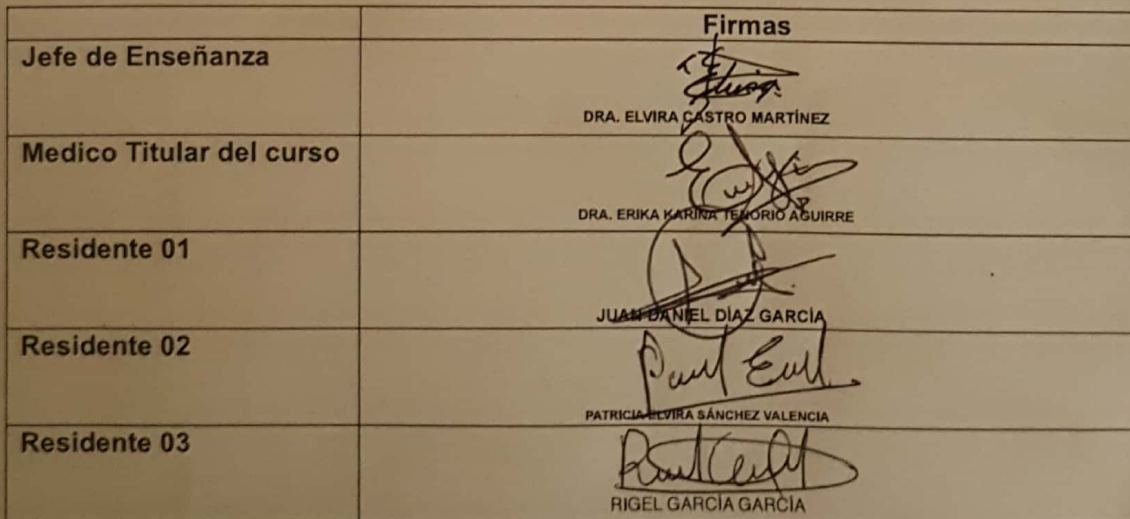 Firmas
Jefe de Enseñanza
DRA. ELVIRA CASTRO MARTÍNEZ
Medico Titular del curso
DRA. ERIKA KARINA TENORIO AGUIRRE
Residente 01
JUAN DANIEL DÍAZ GARCÍA
Residente 02
PATRICIA ELVIRA SÁNCHEZ VALENCIA
Residente 03
RIGEL GARCÍA GARCÍA